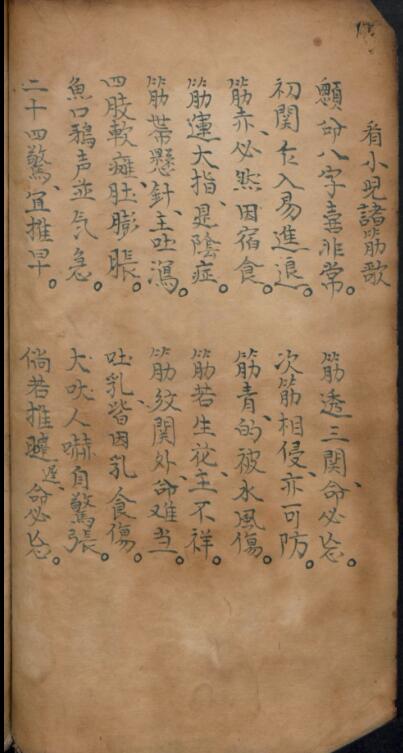 看小兒諸筋歌
顖命八字甚非常。 筋透三關、命必忘。
初関乍入易進退。 次筋相侵、亦可防。
筋赤、必然因宿食。 筋青、的被水風傷。
筋連大指、是陰症。 筋若生花、主不祥。
筋帶懸針、主吐瀉。 筋紋関外、命难当。
四肢軟癱肚膨脹。 吐乳、皆因乳食傷。
魚口鴉声並気急。 犬吠人嚇自驚張。
二十四驚、宜推早。 倘若推遲、命必忘。